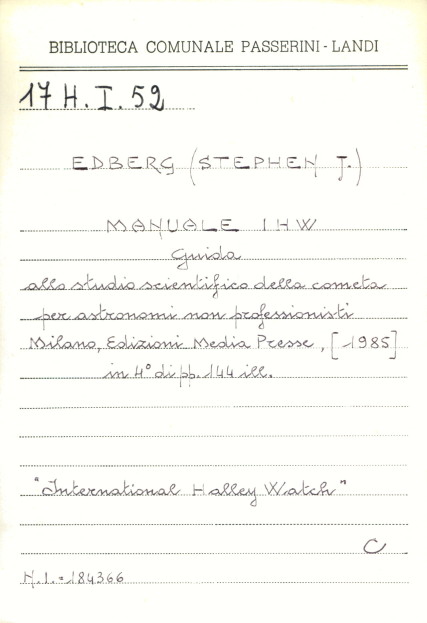 BIBLIOTECA COMUNALE PASSERINI-LANDI
17 H. I. 52
EDBERG (STEPHEN J.)
MANUALE IHW
Guida
allo studio scientifico della cometa
per astronomi non professionisti
Milano, Edizioni Media Presse, [1985]
in 4° di pp. 144 ill.
"International Halley Watch"
C
N.I.=184366